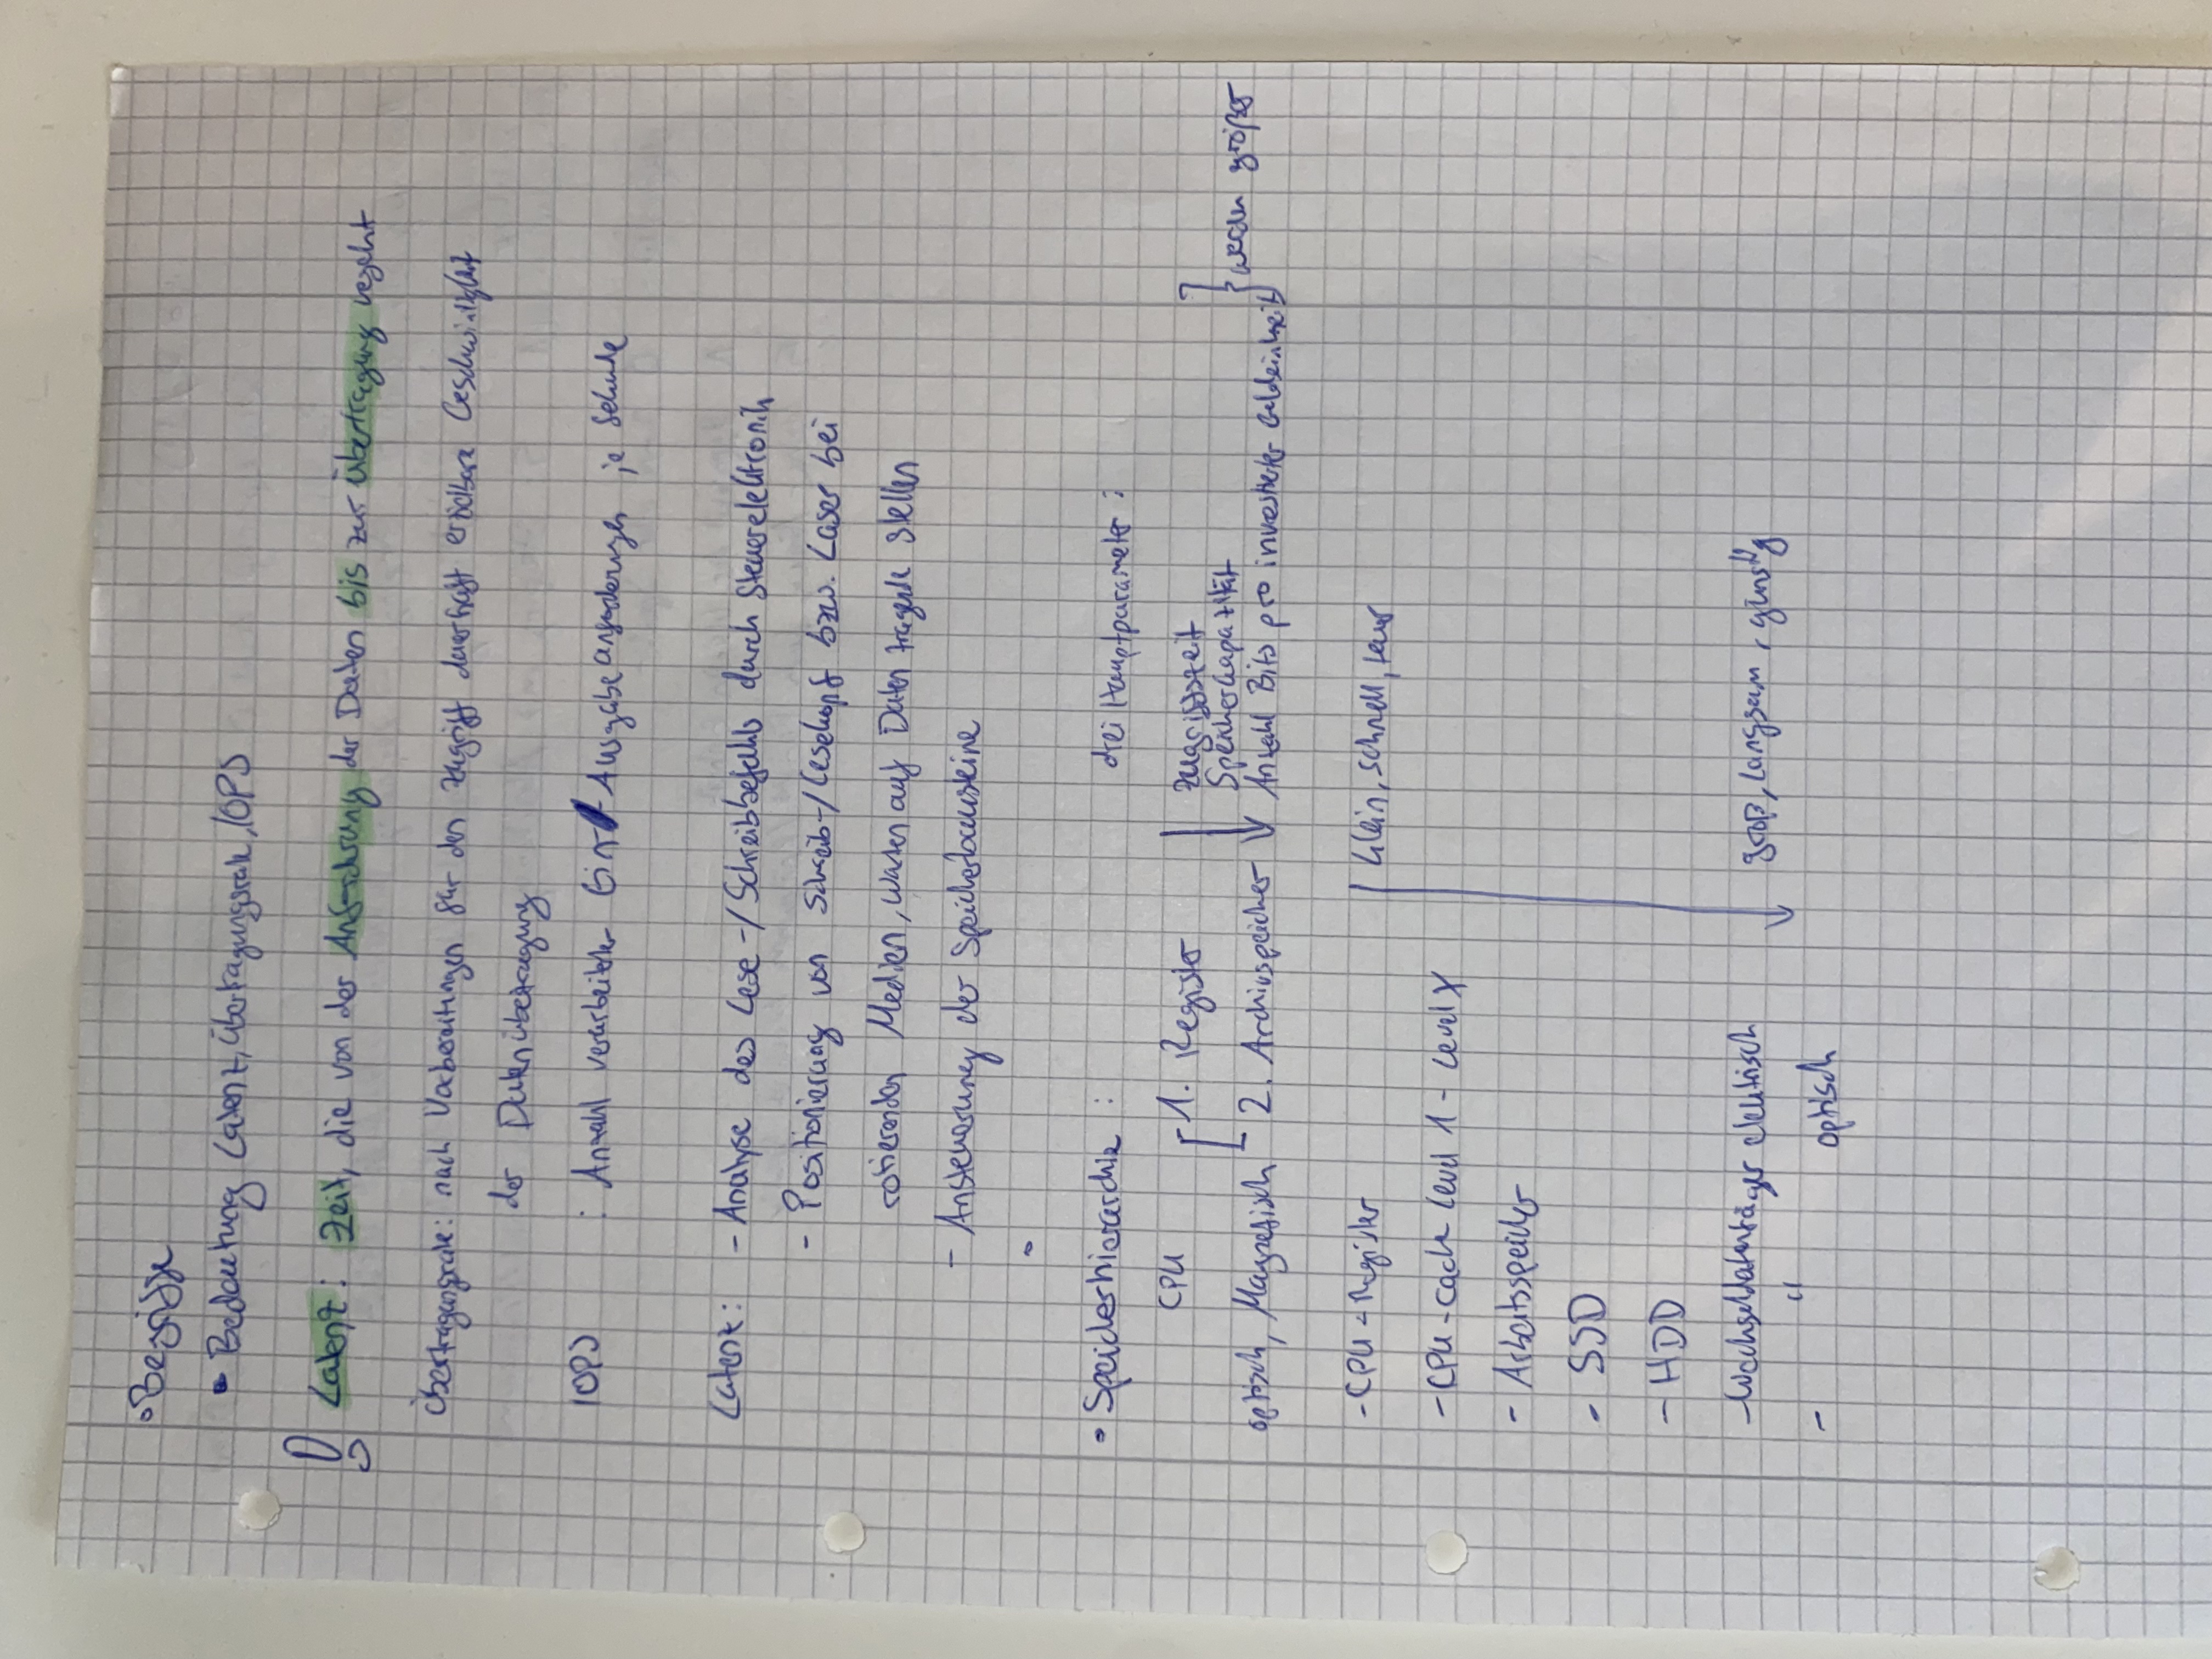 Begriffe
Bedeutung Latenz, Übertragungsrate, IOPS
Latenz: Zeit, die von der Anforderung der Daten bis zur Übertragung vergeht
Übertragungsrate: nach Vorbereitungen für den Zugriff dauerhaft erzielbare Geschwindigkeit
der Datenübertragung
IOPS : Anzahl verarbeiteter Ein- Ausgabeanforderungen je Sekunde
Latenz: - Analyse des Lese-/Schreibbefehls durch Steuerelektronik
- Positionierung von Schreib-/Lesekopf bzw. Laser bei
rotierenden Medien, warten auf Daten tragende Stellen
- Ansteuerung der Speicherbausteine
Speicherhierarchie : drei Hauptparameter:
CPU 1. Register Zugriffszeit
Speicherkapazität } werden größer
optisch, Magnetisch 2. Archivspeicher Anzahl Bits pro investierter Geldeinheit
- CPU-Register klein, schnell, teuer
- CPU-Cach Level 1 - Level X
- Arbeitsspeicher
- SSD
- HDD
- Wechseldatenträger elektrisch groß, langsam, günstig
- " optisch